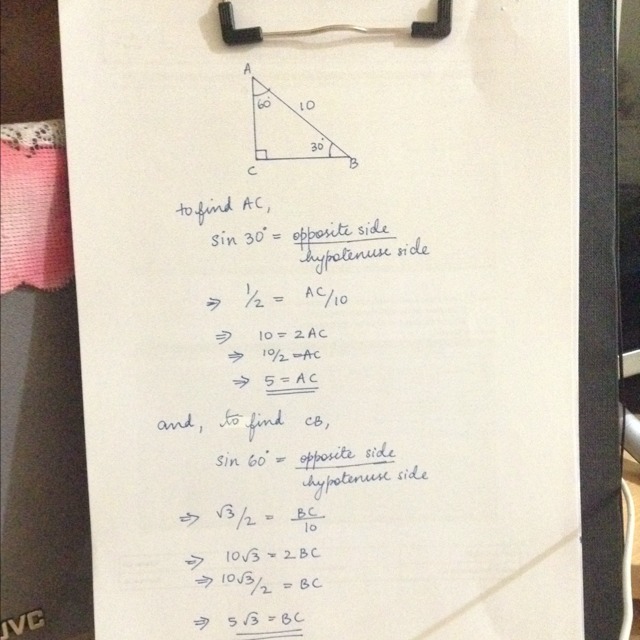 A
60° 10
30°
C B
to find AC,
sin 30° = opposite side
hypotenuse side
⇒ 1/2 = AC/10
⇒ 10 = 2AC
⇒ 10/2 = AC
⇒ 5 = AC
and, to find CB,
sin 60° = opposite side
hypotenuse side
⇒ √3/2 = BC
10
⇒ 10√3 = 2BC
⇒ 10√3/2 = BC
⇒ 5√3 = BC
JVC